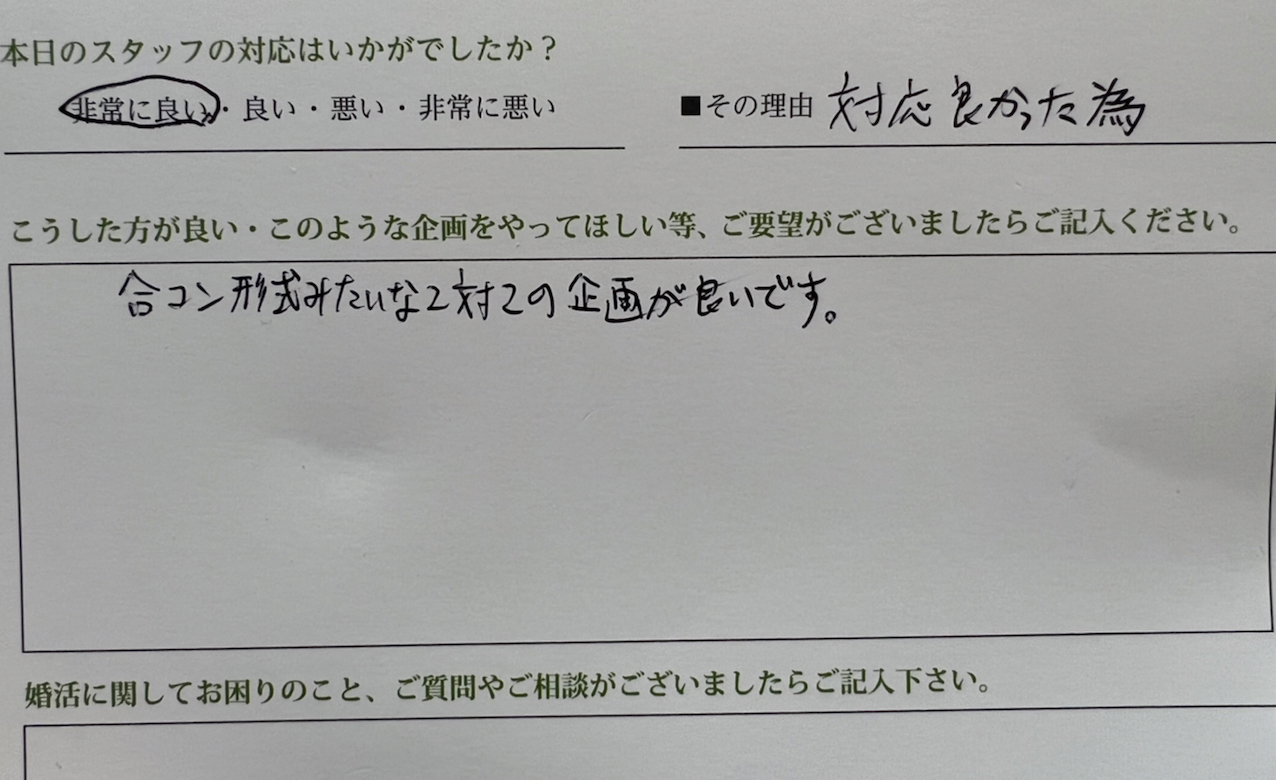 本日のスタッフの対応はいかがでしたか？
非常に良い・良い・悪い・非常に悪い
■その理由 対応良かった為
こうした方が良い・このような企画をやってほしい等、ご要望がございましたらご記入ください。
合コン形式みたいな2対2の企画が良いです。
婚活に関してお困りのこと、ご質問やご相談がございましたらご記入下さい。